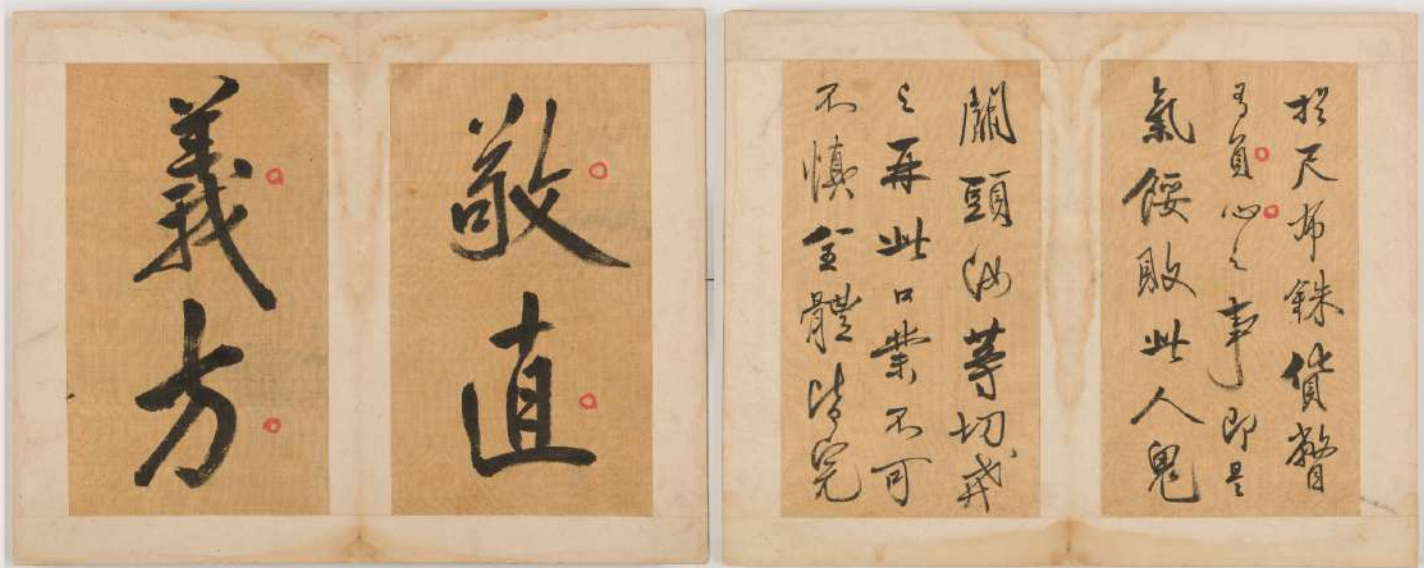 於尺布銖貨瞥
有負心之事即是
氣餒敗此人鬼
關頭汝等切戒
之再此口業不可
不慎全體皆完
敬直
義方